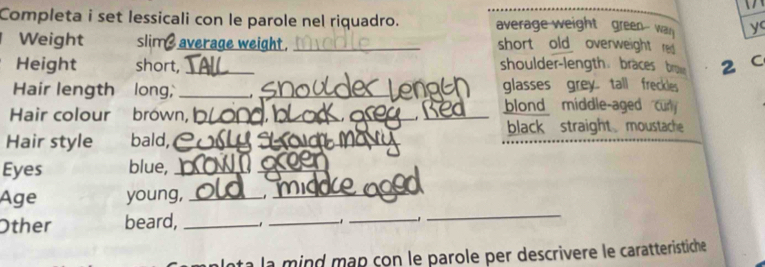 Completa i set lessicali con le parole nel riquadro.
Weight slim average weight,
Height short, TALL
Hair length long, , shoulder Length
Hair colour brown, blond, black, grey, Red
Hair style bald, curly straight
Eyes blue, brown green
Age young, old, middle aged
Other beard, , , ,
average weight green wavy
short old overweight red
shoulder-length braces brow
glasses grey tall freckles
blond middle-aged curly
black straight moustache
2 C
la mind map con le parole per descrivere le caratteristiche